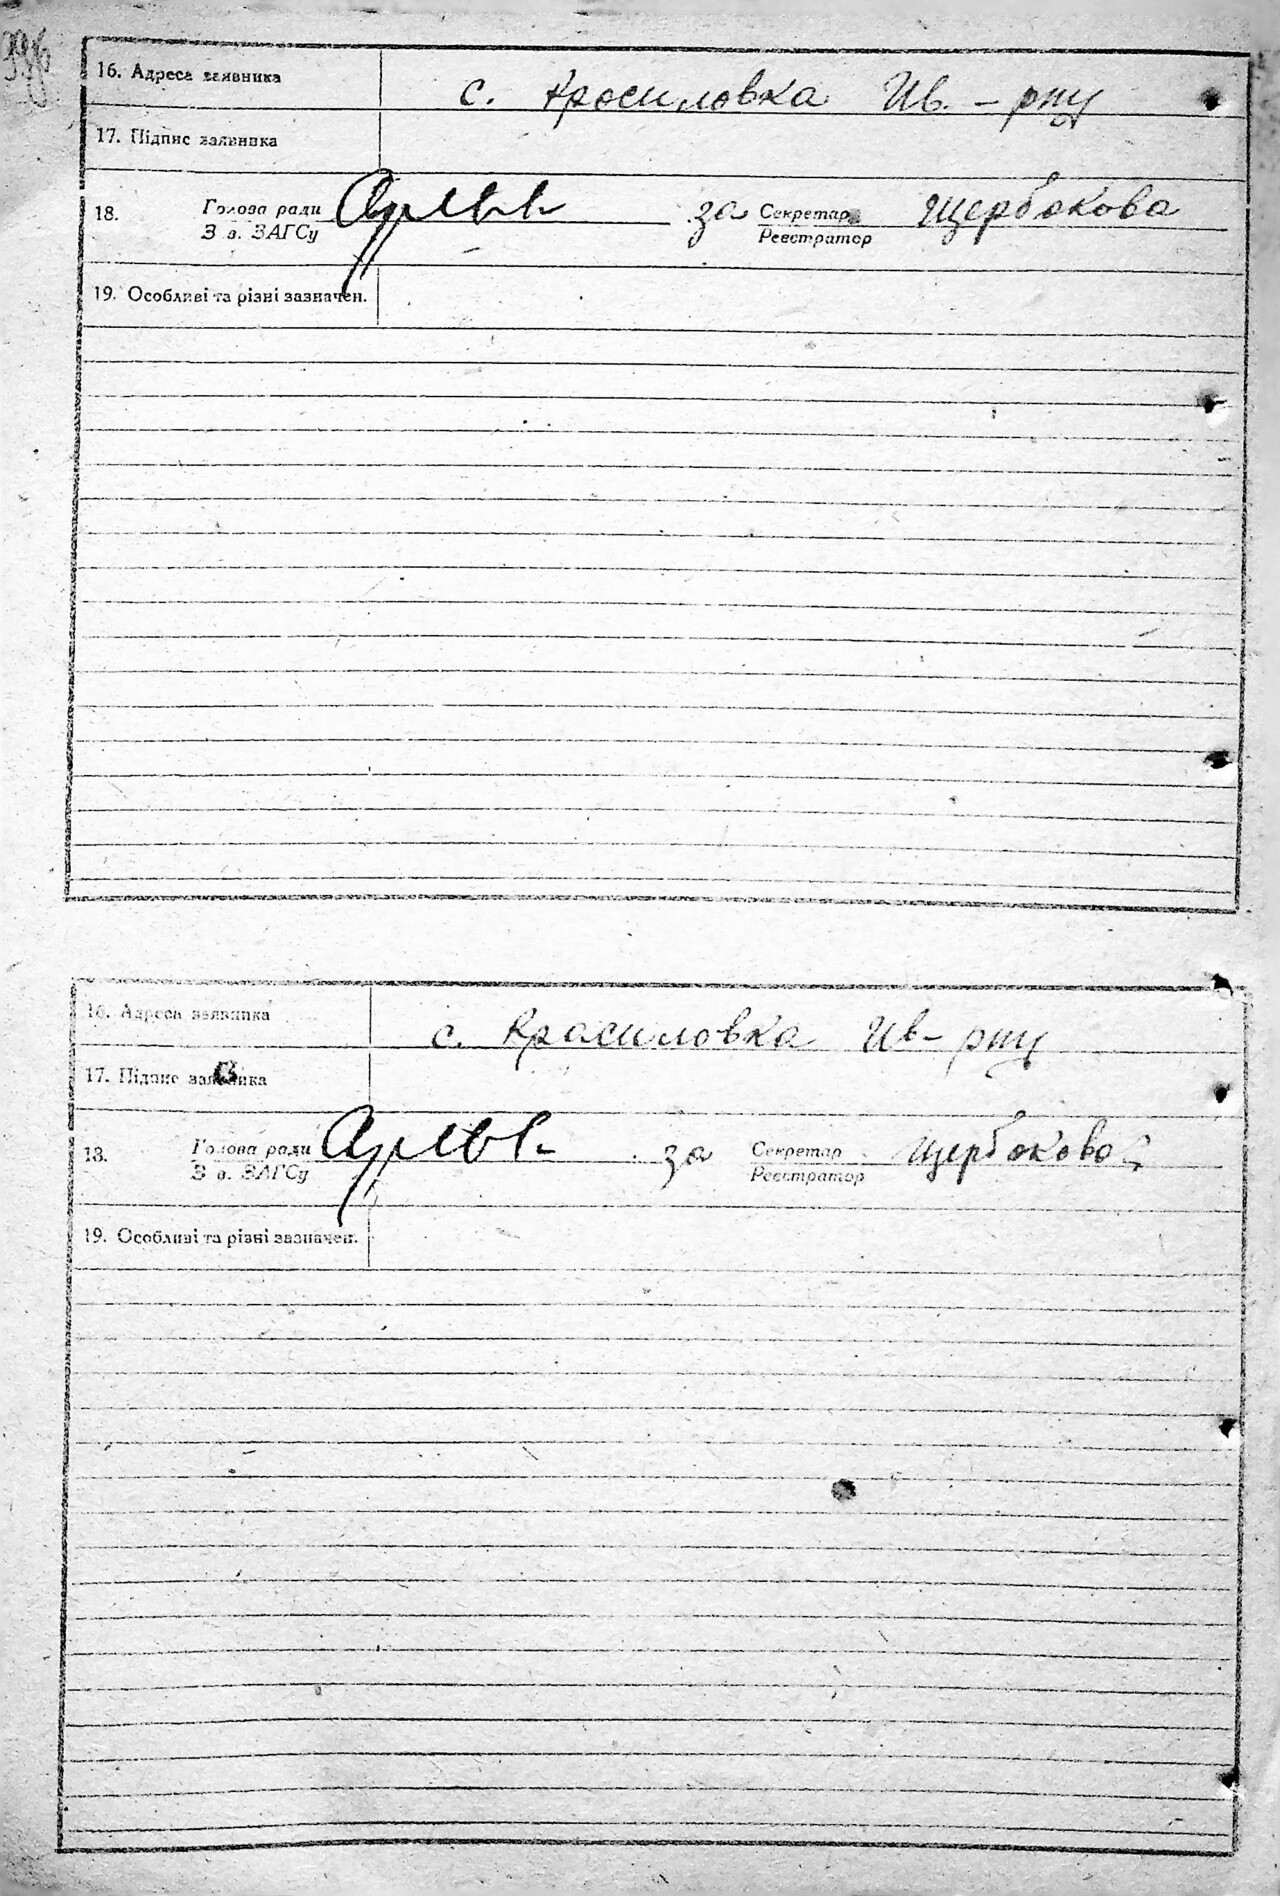 16. Адреса заявника с. Красиловка Ив. - рну
17. Підпис заявника
18. Голова ради за Секретар Щербакова
З в. ЗАГСу Реєстратор
19. Особливі та різні зазначен.
16. Адреса заявника с. Красиловка Ив- рну
17. Підпис заявника
18. Голова ради за Секретар Щербакова
З в. ЗАГСу Реєстратор
19. Особливі та різні зазначен.